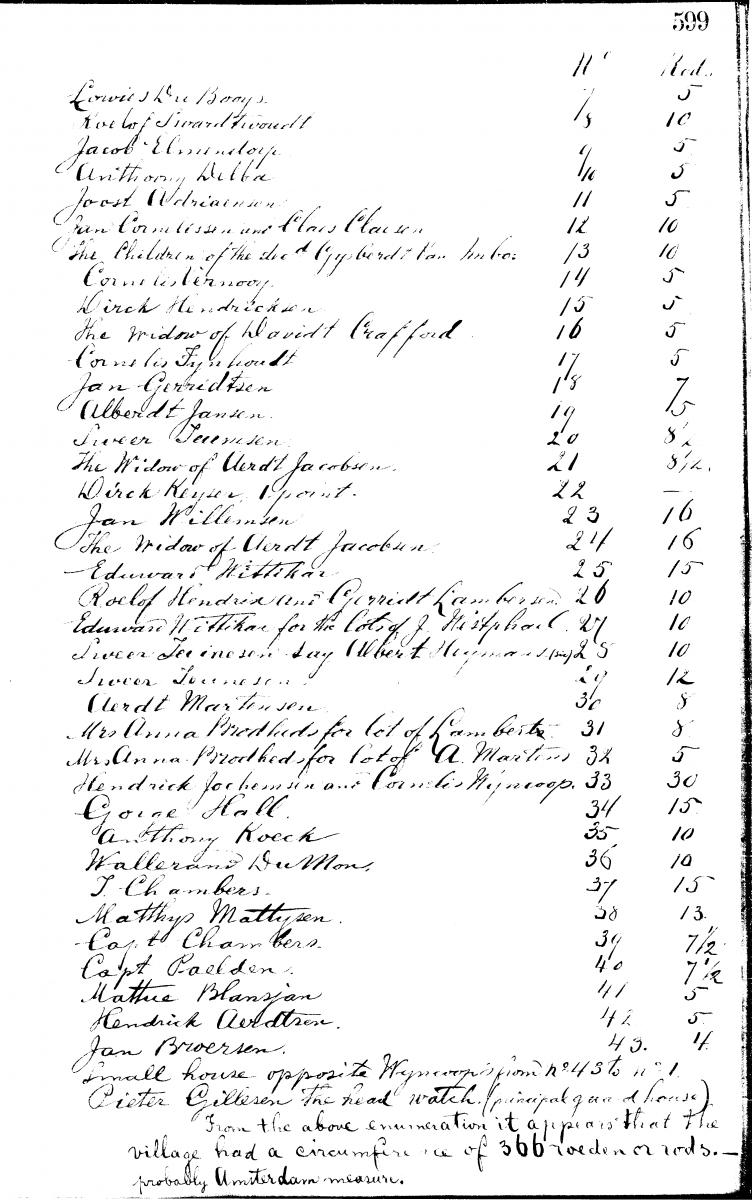 599
No Rod.
Lowies Du Booys. 7 5
Roelof Swardtwoudt 8 10
Jacob Elmendorp 9 5
Anthoony Delba 10 5
Joost Adriaensen 11 5
Jan Cornelissen and Claes Claesen 12 10
The Children of the dec'd Gysberdt Van Imbo: 13 10
Cornelis Vernooy 14 5
Dirck Hendricksen 15 5
The Widow of Davidt Crafford 16 5
Cornelis Fynhoudt 17 5
Jan Gerridtsen 18 7
Alberdt Jansen. 19 15
Sweer Teunisen 20 8½
The Widow of Aerdt Jacobsen. 21 8½.
Dirck Keyser, 1 point. 22 —
Jan Willemsen 23 16
The Widow of Aerdt Jacobsen. 24 16
Eduward Wittikar 25 15
Roelof Hendrix and Gerridt Lambersen. 26 10
Eduward Wittikar for the lots of J. Westphael. 27 10
Sweer Teunesen say Albert Heymans 28 10
Sweer Teunesen. 29 12
Aerdt Martensen 30 8
Mrs Anna Brodheds for lot of Lamberts 31 8
Mrs Anna Brodheds for lot of A. Martens 32 5
Hendrick Jochemsen and Cornelis Wyncoop. 33 30
Gorge Hall. 34 15
Anthony Koeck 35 10
Wallerand Du Mon. 36 10
T. Chambers. 37 15
Matthys Mattysen. 38 13.
Capt Chambers. 39 7½
Capt Paelden. 40 7½
Mathue Blansjan 41 5
Hendrick Aerdtsen. 42 5.
Jan Broersen. 43. 4.
Small house opposite Wyncoop's from no 43 to no 1.
Pieter Gillesen the head watch. (principal guard house).
From the above enumeration it appears that the
village had a circumference of 366 roeden or rods.—
probably Amsterdam measure.